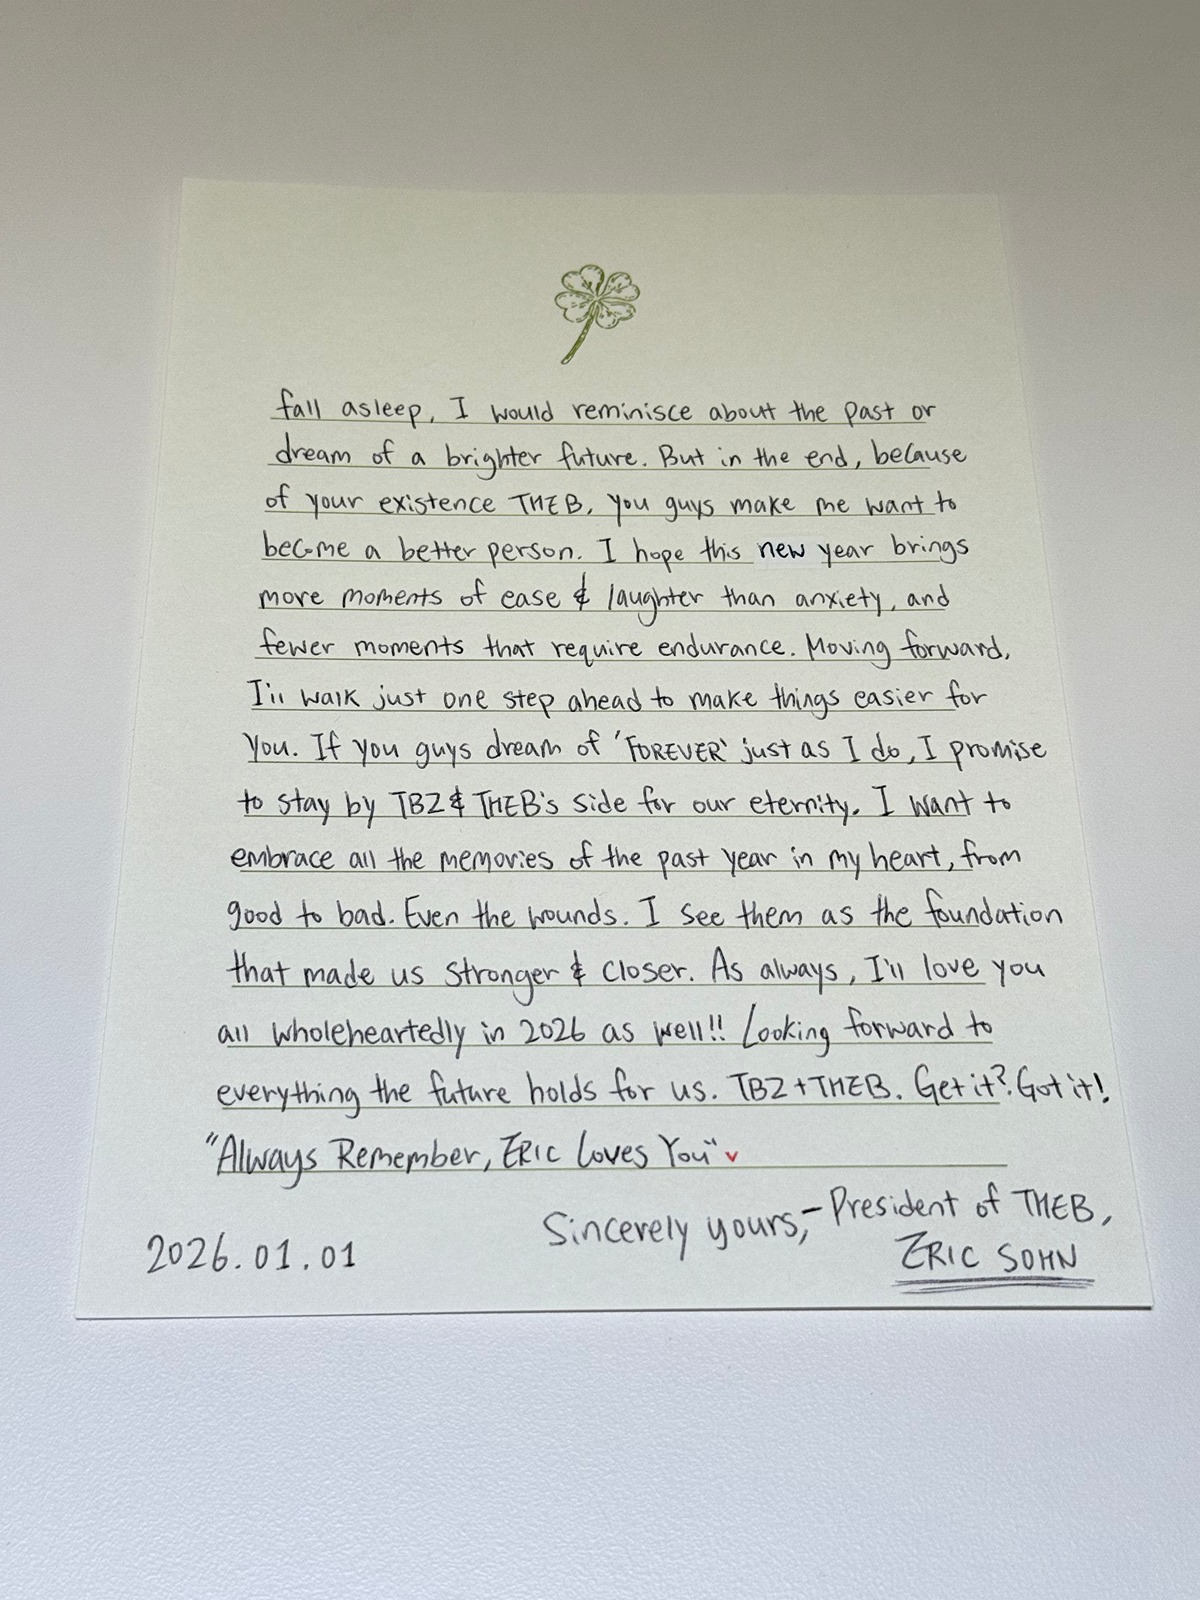 fall asleep, I would reminisce about the past or
dream of a brighter future. But in the end, because
of your existence THEB, you guys make me want to
become a better person. I hope this new year brings
more moments of ease & laughter than anxiety, and
fewer moments that require endurance. Moving forward,
I'll walk just one step ahead to make things easier for
you. If you guys dream of 'FOREVER' just as I do, I promise
to stay by TBZ & THEB's side for our eternity. I want to
embrace all the memories of the past year in my heart, from
good to bad. Even the wounds. I see them as the foundation
that made us stronger & closer. As always, I'll love you
all wholeheartedly in 2026 as well!! Looking forward to
everything the future holds for us. TBZ + THEB. Get it? Got it!
"Always Remember, ERIC Loves You"
Sincerely yours, - President of THEB,
2026.01.01 ERIC SOHN